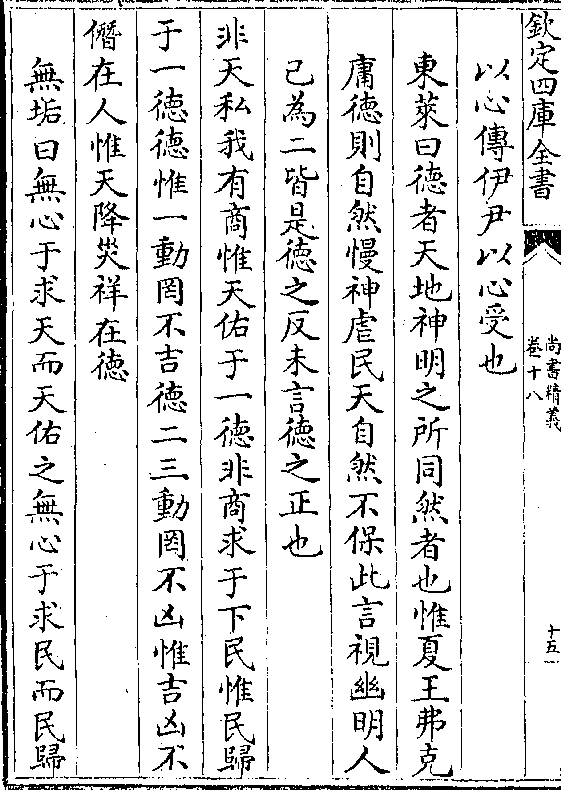 欽定四庫全書
尚書精義
卷十八
十五
以心傳伊尹以心受也
東萊曰德者天地神明之所同然者也惟夏王弗克
庸德則自然慢神虐民天自然不保此言視幽明人
己為二皆是德之反未言德之正也
非天私我有商惟天佑于一德非商求于下民惟民歸
于一德德惟一動罔不吉德二三動罔不凶惟吉凶不
僭在人惟天降災祥在德
無垢曰無心于求天而天佑之無心于求民而民歸